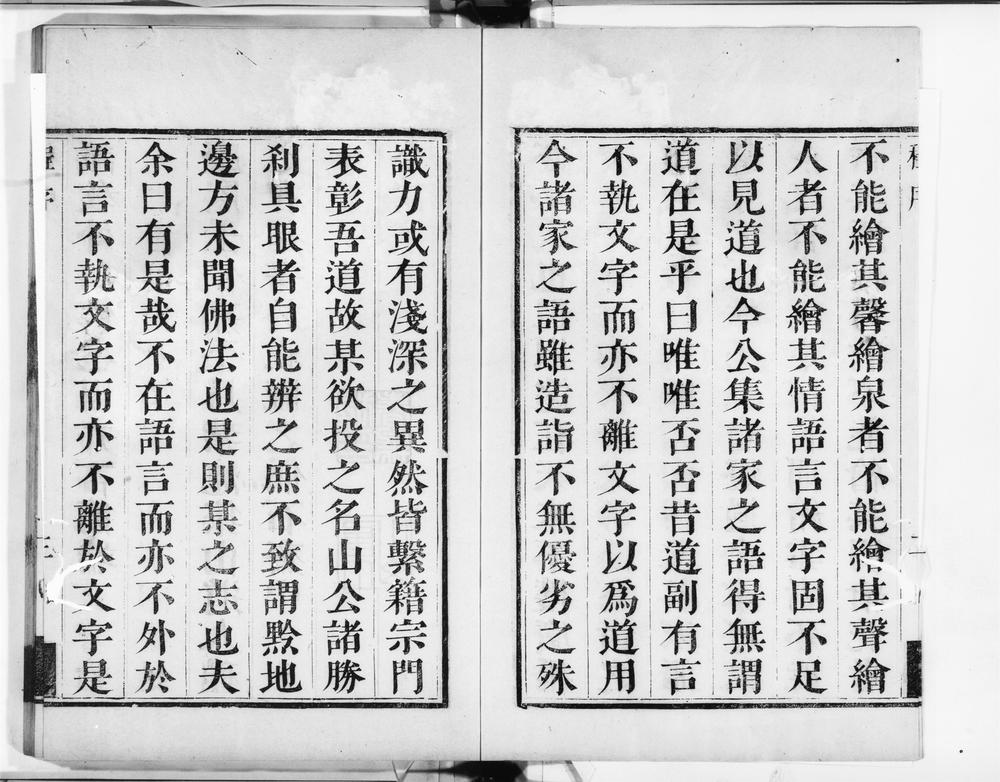 不能繪其馨繪泉者不能繪其聲繪
人者不能繪其情語言文字固不足
以見道也今公集諸家之語得無謂
道在是乎曰唯唯否否昔道副有言
不執文字而亦不離文字以爲道用
今諸家之語雖造詣不無優劣之殊
識力或有淺深之異然皆繫籍宗門
表彰吾道故某欲投之名山公諸勝
刹具眼者自能辨之庶不致謂黔地
邊方未聞佛法也是則某之志也夫
余曰有是哉不在語言而亦不外於
語言不執文字而亦不離於文字是